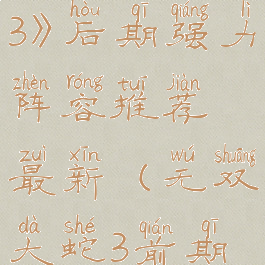 hòu qī qiáng lì
3》后期强力
zhèn róng tuī jiàn
阵容推荐
zuì xīn wú shuāng
最新（无双
dà shé qián qī
大蛇3前期